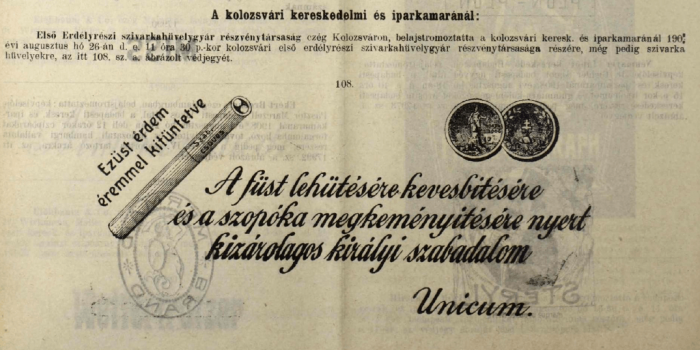 A kolozsvári kereskedelmi és iparkamaránál:
Első Erdélyrészi szivarkahüvelygyár részvénytársaság czég Kolozsváron, belajstromoztatta a kolozsvári keresk. és iparkamaránál 190
évi augusztus hó 26-án d. e. 11 óra 30 p.-kor kolozsvári első erdélyrészi szivarkahüvelygyár részvénytársasága részére, még pedig szivarka
hüvelyekre, az itt 108. sz. a. ábrázolt védjegyét.
108.
Ezüst érdem
éremmel kitüntetve
A füst lehütésére kevesbitésére
és a szopóka megkeményitésére nyert
kizárolagos királyi szabadalom
Unicum.